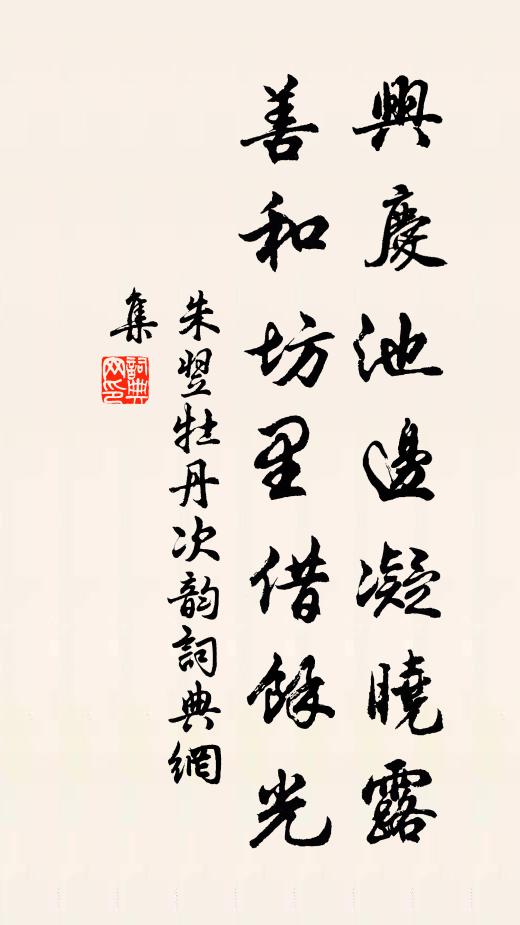 興慶池邊凝曉露
善和坊里借餘光
朱翌牡丹次韵詞典網
集
詞典
网印